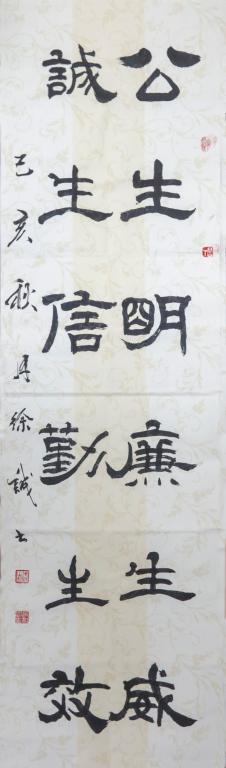 公生明廉生威
誠生信勤生效
己亥秋月徐誠書